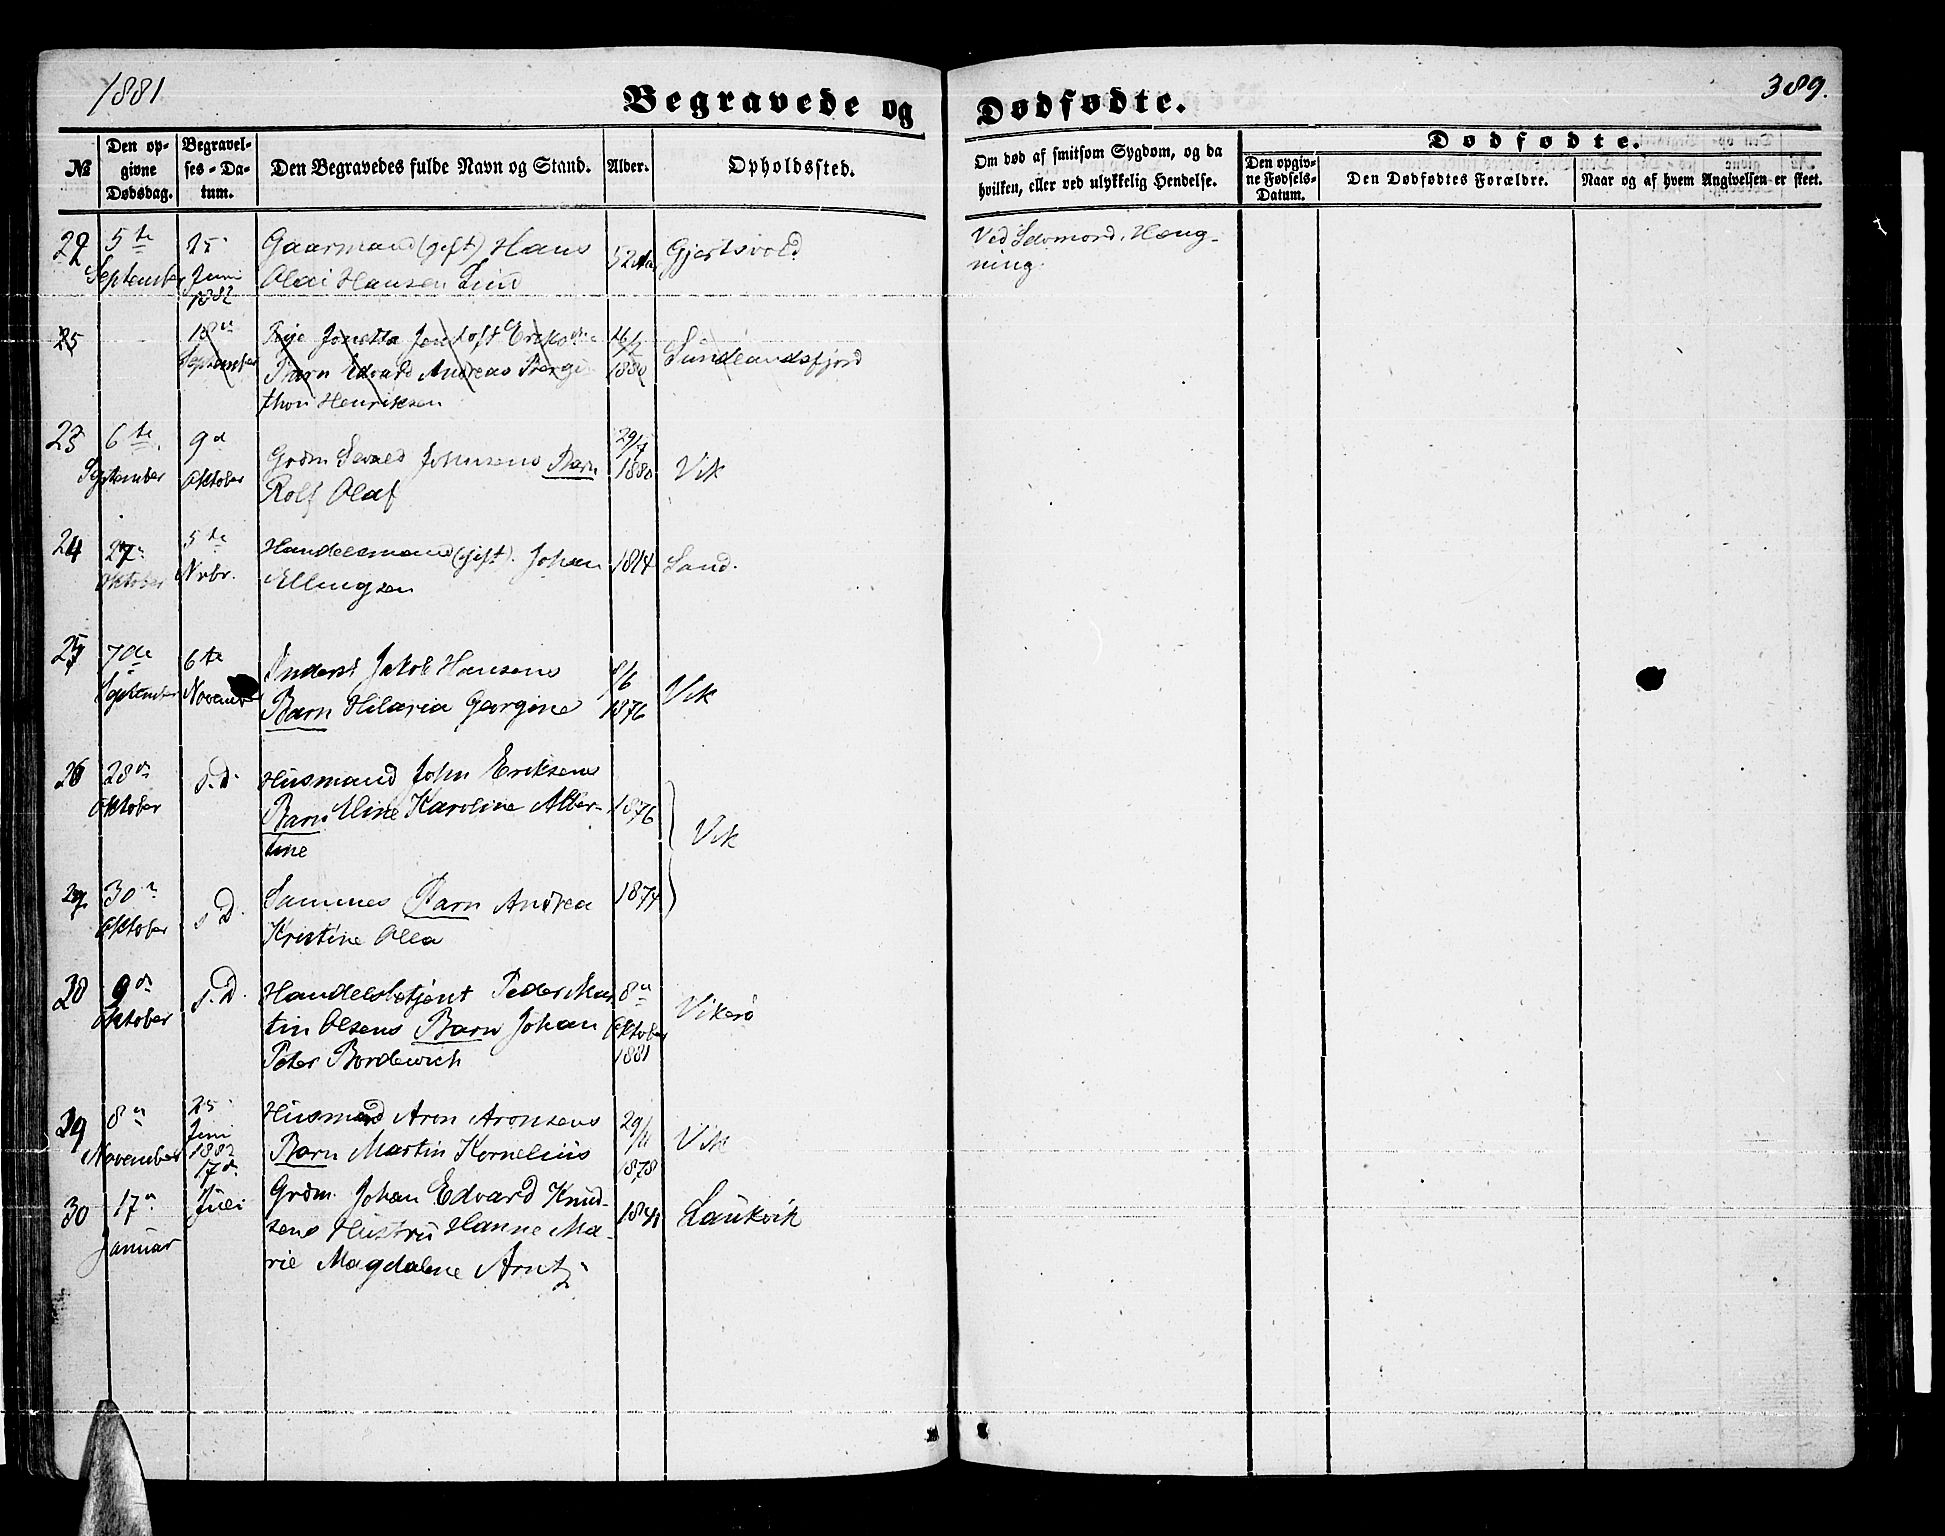 1881
Begravede og Dødfødte.
389.
№
Den opgivne Dødsdag.
Begravelses-Datum.
Den Begravedes fulde Navn og Stand.
Alder.
Opholdssted.
Om død af smitsom Sygdom, og da
hvilken, eller ved ulykkelig Hendelse.
Dødfødte.
Den opgivne Fødsels-Datum.
Den Dødfødtes Forældre.
Naar og af hvem Angivelsen er skeet.
22 5te 25 Gaarmand (gift) Hans 52 Gjertsvold Ved Selvmord, Hæng-
September Juni Olai Hansen Lind ning.
1882
25 18de Pige Jonetta Jentoft 16/2 Sundlandsfjord
September Barn Edvard Andreas 1880
thon Henriksen
23 6te 9d Grdm Sevald Johnsens Barn 29/7 Vik
September Oktober Rolf Olaf 1880
24 27 5te Handelsmand (gift). Johan 1814 Sand.
Oktober Nvbr. Ellingsen
25 7de 6te Inderst Jakob Hansens /6 Vik
September November Barn Hilaria Gergine 1876
26 28de s.D. Husmand John Eriksens
Oktober Barn Aline Karoline Alber- 1876 Vik
tine
27 30 s.D. Sammes Barn Andrea 1874
Oktober Kristine Olea
28 9de s.D. Handelsbetjent Peder Mar- 8de Vikerø
Oktober tin Olsens Barn Johan Oktober
Peter Bordewich 1881
29 8de 25 Husmand Aron Aronsens 29/11 Vik
November Juni Barn Martin Kornelius 1878
1882
30 17de 17de Grdm. Johan Edvard Knud- 1841 Laukvik
Januar Juli sens Hustru Hanne Ma-
rie Magdalene Arntz